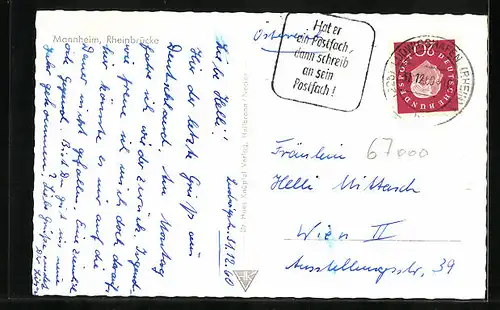 Mannheim, Rheinbrücke
Ludwigsh. 31.12.60
Liebe Helli!
Hier der letzte Gruß aus
Deutschland. Am Montag
fahre ich wieder zurück. Irgend-
wie freue ich mich doch darauf.
hier könnte es mir auf die
Dauer nicht gefallen. Eine
Gegend. Bist Du gut ins neue
Jahr gekommen? Liebe Grüße
Dr. Hans Knöpfel Verlag, Heilbronn/Neckar
Österreich
Hat er
ein Postfach,
dann schreib
an sein
Postfach!
20
DEUTSCHE BUNDESPOST
LUDWIGSHAFEN (RHEIN)
12.60
67000
Fräulein
Helli Mittasch
Wien II
Ausstellungsstr. 39